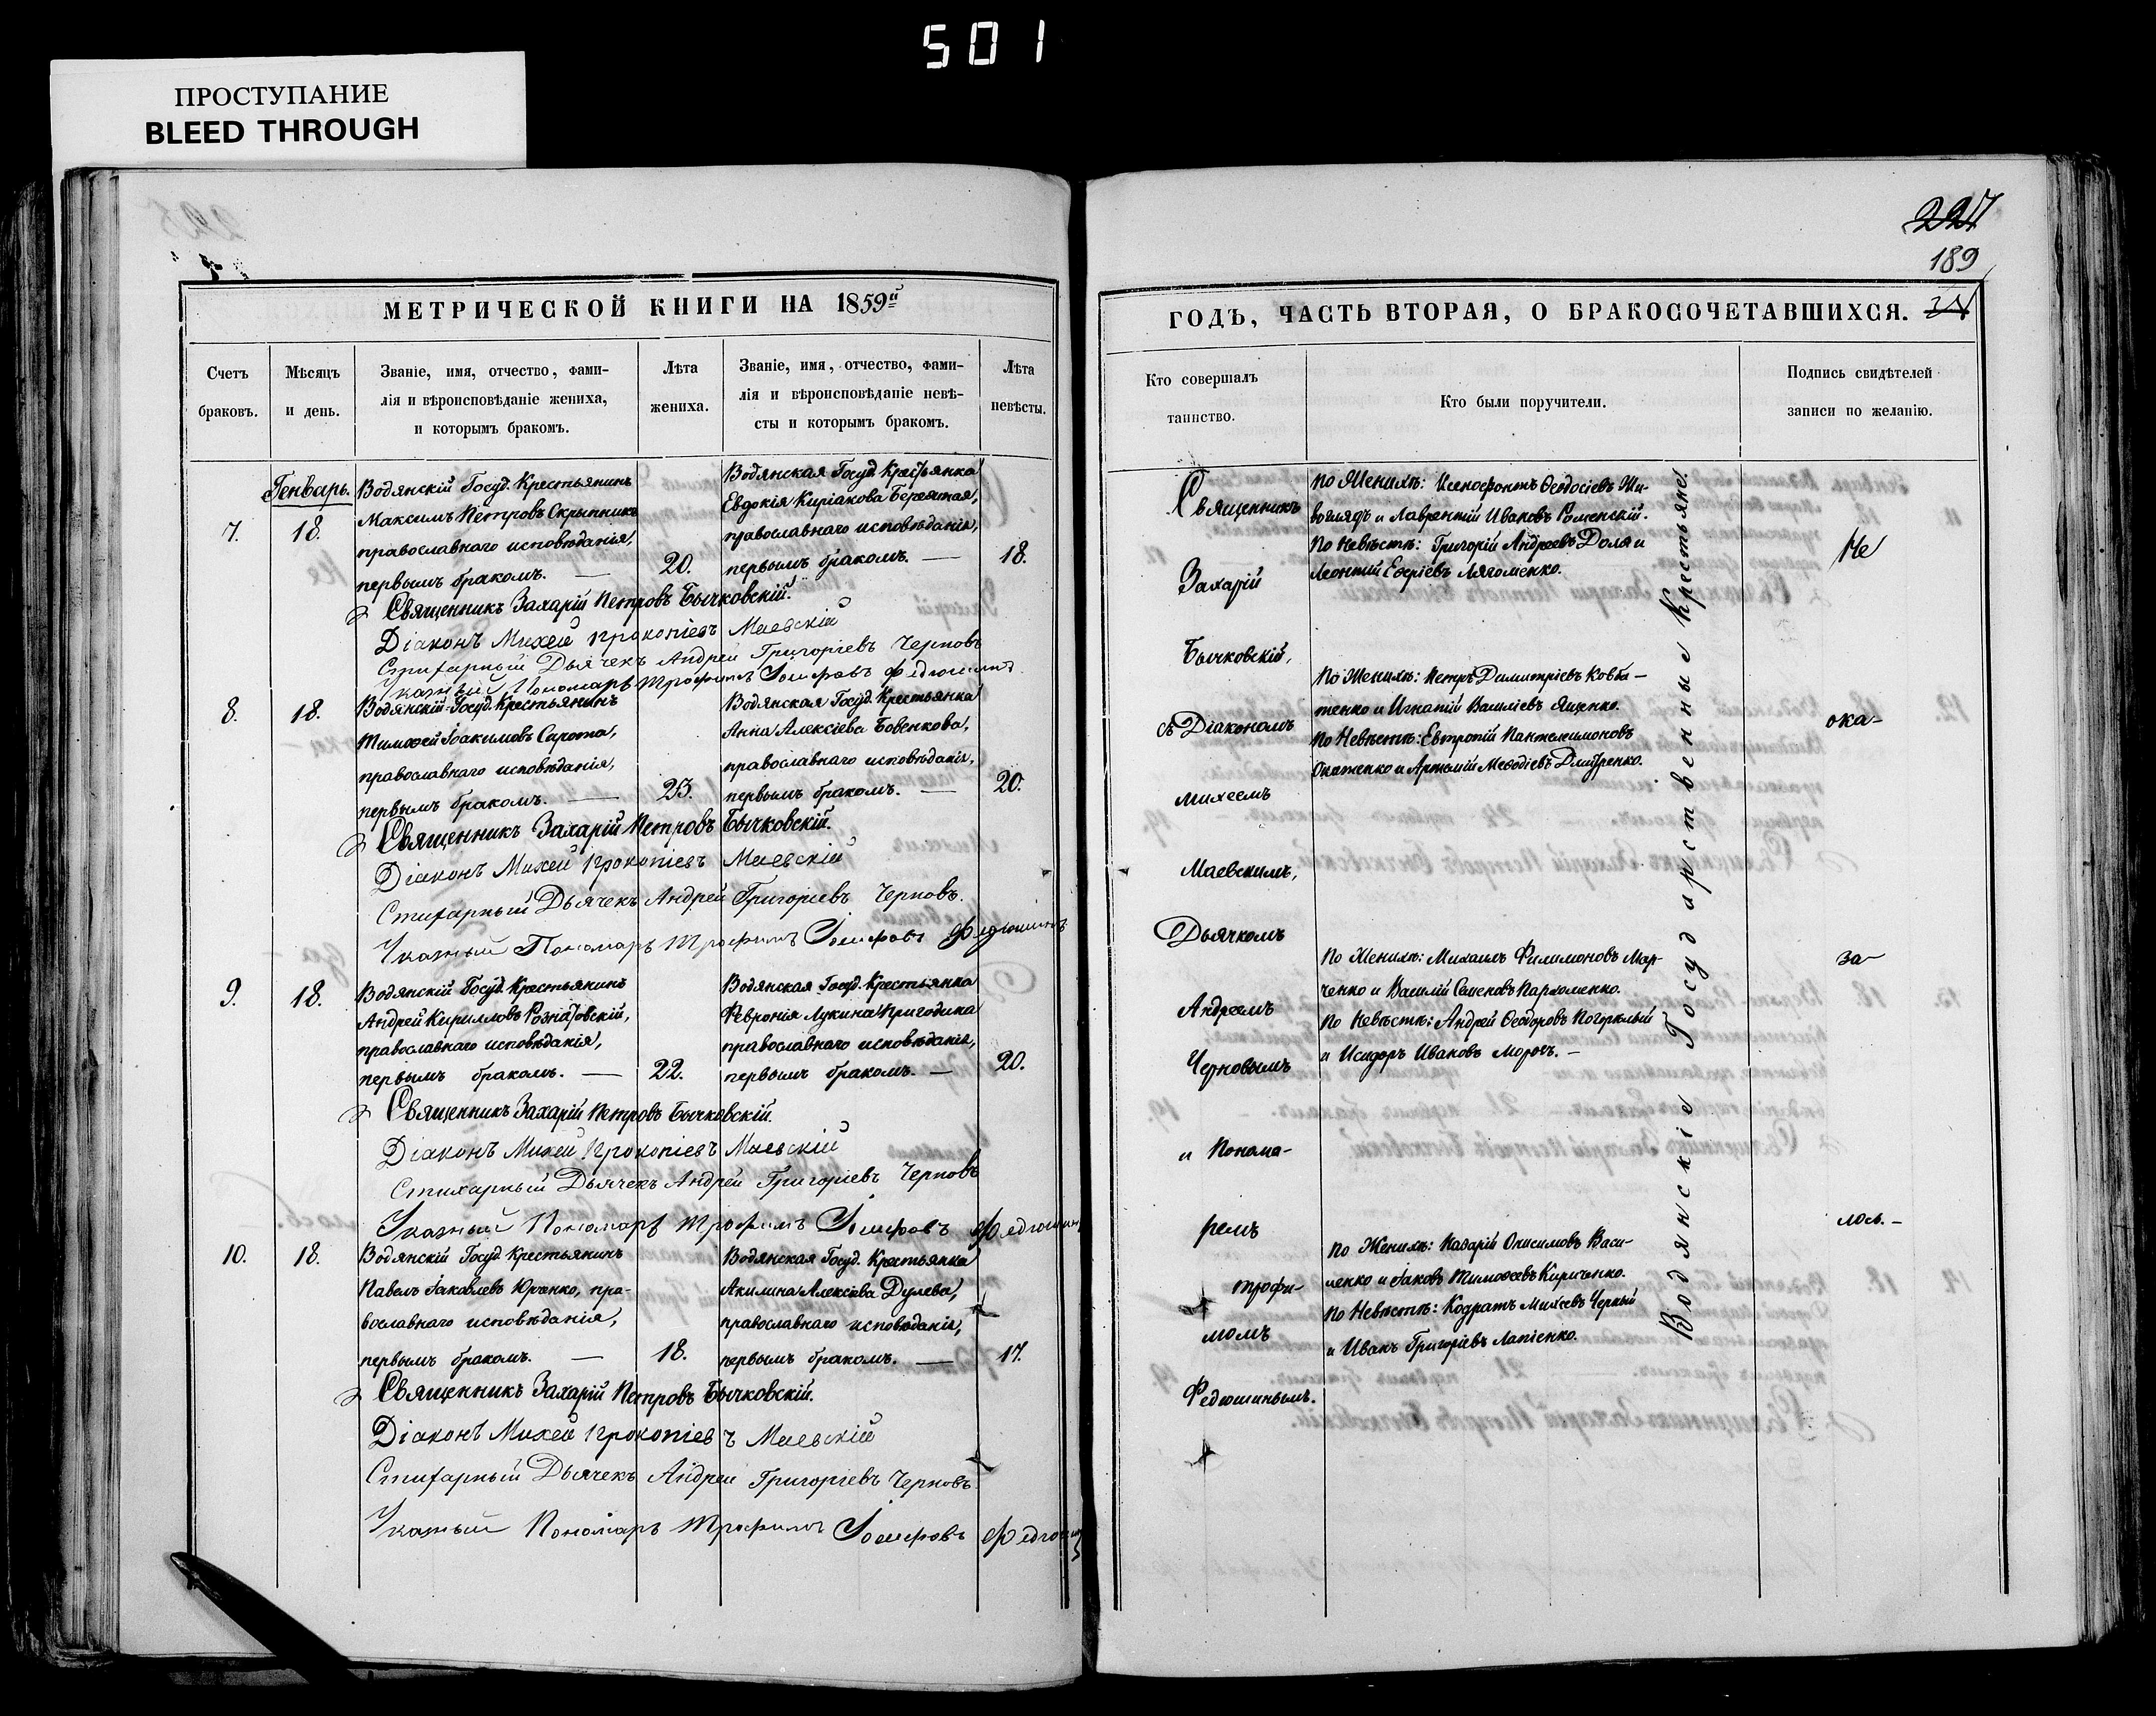 501
ПРОСТУПАНИЕ
BLEED THROUGH
МЕТРИЧЕСКОЙ КНИГИ НА 1859й
Счетъ браковъ.
Мѣсяцъ и день.
Званіе, имя, отчество, фами-
лія и вѣроисповѣданіе жениха,
и которымъ бракомъ.
Лѣта жениха.
Званіе, имя, отчество, фами-
лія и вѣроисповѣданіе невѣ-
сты и которымъ бракомъ.
Лѣта невѣсты.
Генварь.
7.
18.
Водянскій Госуд. Крестьянинъ
Максимъ Петровъ Скрыпникъ
православнаго исповѣданія,
первымъ бракомъ. —
20.
Водянская Госуд. Крестьянка
Евдокія Киріакова
православнаго исповѣданія,
первымъ бракомъ. —
18.
Священникъ Захарій Петровъ Бычковскій.
Діаконъ Михей Прокопіевъ Маевскій
Стихарный Дьячекъ Андрей Григоріевъ Черновъ
Указный Пономарь Трофимъ Іосифовъ Федюшинъ
8.
18.
Водянскій Госуд. Крестьянинъ
Тимофей Іоакимовъ Сирота,
православнаго исповѣданія,
первымъ бракомъ. —
23.
Водянская Госуд. Крестьянка
Анна Алексіева Бовенкова,
православнаго исповѣданія,
первымъ бракомъ. —
20.
Священникъ Захарій Петровъ Бычковскій.
Діаконъ Михей Прокопіевъ Маевскій
Стихарный Дьячекъ Андрей Григоріевъ Черновъ.
Указный Пономарь Трофимъ Іосифовъ Федюшинъ
9.
18.
Водянскій Госуд. Крестьянинъ
Андрей Кирилловъ
православнаго исповѣданія,
первымъ бракомъ. —
22.
Водянская Госуд. Крестьянка
Февронія Лукина Пригодина
православнаго исповѣданія,
первымъ бракомъ. —
20.
Священникъ Захарій Петровъ Бычковскій.
Діаконъ Михей Прокопіевъ Маевскій
Стихарный Дьячекъ Андрей Григоріевъ Черновъ
Указный Пономарь Трофимъ Іосифовъ Федюшинъ
10.
18.
Водянскій Госуд. Крестьянинъ
Павелъ Іаковлевъ Юрченко, пра-
вославнаго исповѣданія,
первымъ бракомъ. —
18.
Водянская Госуд. Крестьянка
Акилина Алексіева Дулева,
православнаго исповѣданія,
первымъ бракомъ. —
17.
Священникъ Захарій Петровъ Бычковскій.
Діаконъ Михей Прокопіевъ Маевскій
Стихарный Дьячекъ Андрей Григоріевъ Черновъ
Указный Пономарь Трофимъ Іосифовъ
227
189
ГОДЪ, ЧАСТЬ ВТОРАЯ, О БРАКОСОЧЕТАВШИХСЯ.
Кто совершалъ
таинство.
Кто были поручители.
Подпись свидѣтелей
записи по желанію.
Священникъ
Захарій
Бычковскій,
съ Діакономъ
Михеемъ
Маевскимъ,
Дьячкомъ
Андреемъ
Черновымъ
и Понома-
ремъ
Трофи-
момъ
Федюшинымъ.
По Женихѣ: Ксенофонтъ Ѳеодосіевъ
и Лаврентій Ивановъ Роменскій.
По Невѣстѣ: Григорій Андреевъ Доля и
Леонтій
По Женихѣ: Петръ Димитріевъ Ковба-
тенко и Игнатій Василіевъ Ященко.
По Невѣстѣ: Евтропій Пантелимоновъ
и Артемій Меѳодіевъ Дмитренко.
По Женихѣ: Михаилъ Филимоновъ Мар-
ченко и Василій Семеновъ Пархоменко.
По Невѣстѣ: Андрей Ѳеодоровъ Погорѣлый
и Исидоръ Ивановъ Морозъ. —
По Женихѣ: Назарій Онисимовъ Васи-
ленко и Іаковъ Тимоѳеевъ Кириченко.
По Невѣстѣ: Кодратъ Михеевъ Черный
и Иванъ Григоріевъ Лапіенко.
Водянскіе Государственные Крестьяне.
Не
ока-
за-
лось. —